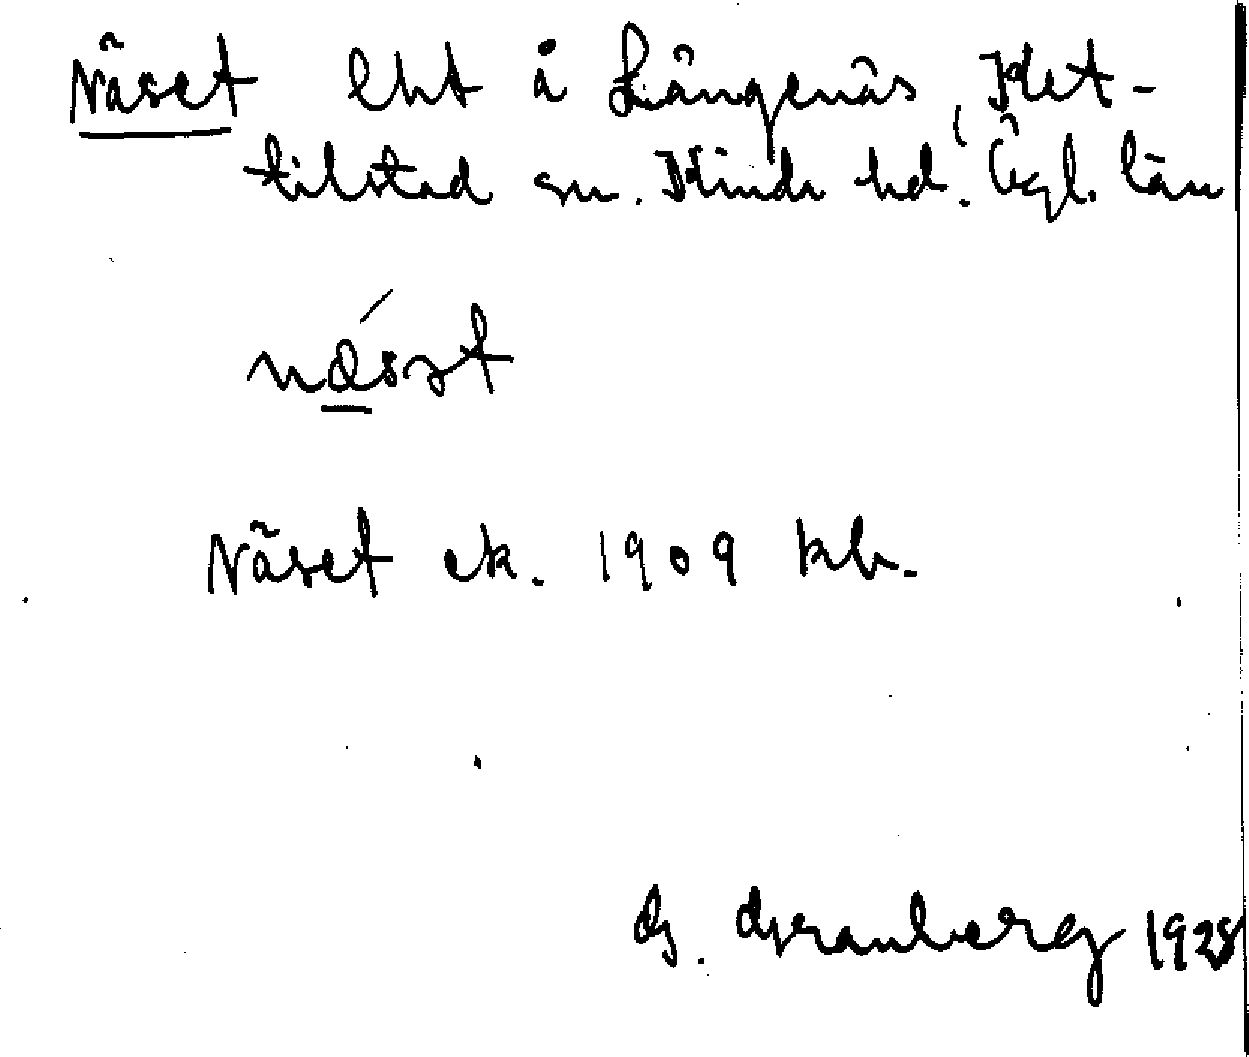 Näset lht å Långenäs, Ket-
tilstad sn. Kinds hd. Ögl. län
näsət
Näset ek. 1909 kb.
G. Granberg 1928